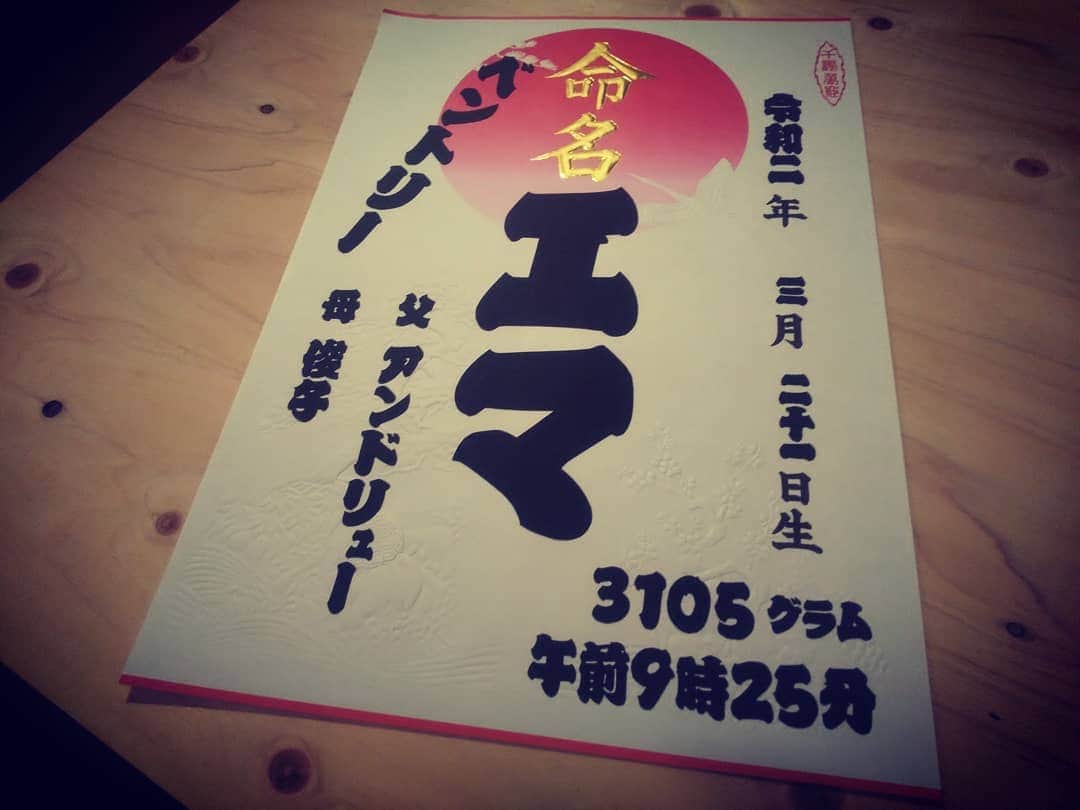 千壽萬歳
令和二年 三月 二十一日生
命名
エマ
ベントリー
父 アンドリュー
母 俊子
3105グラム
午前9時25分